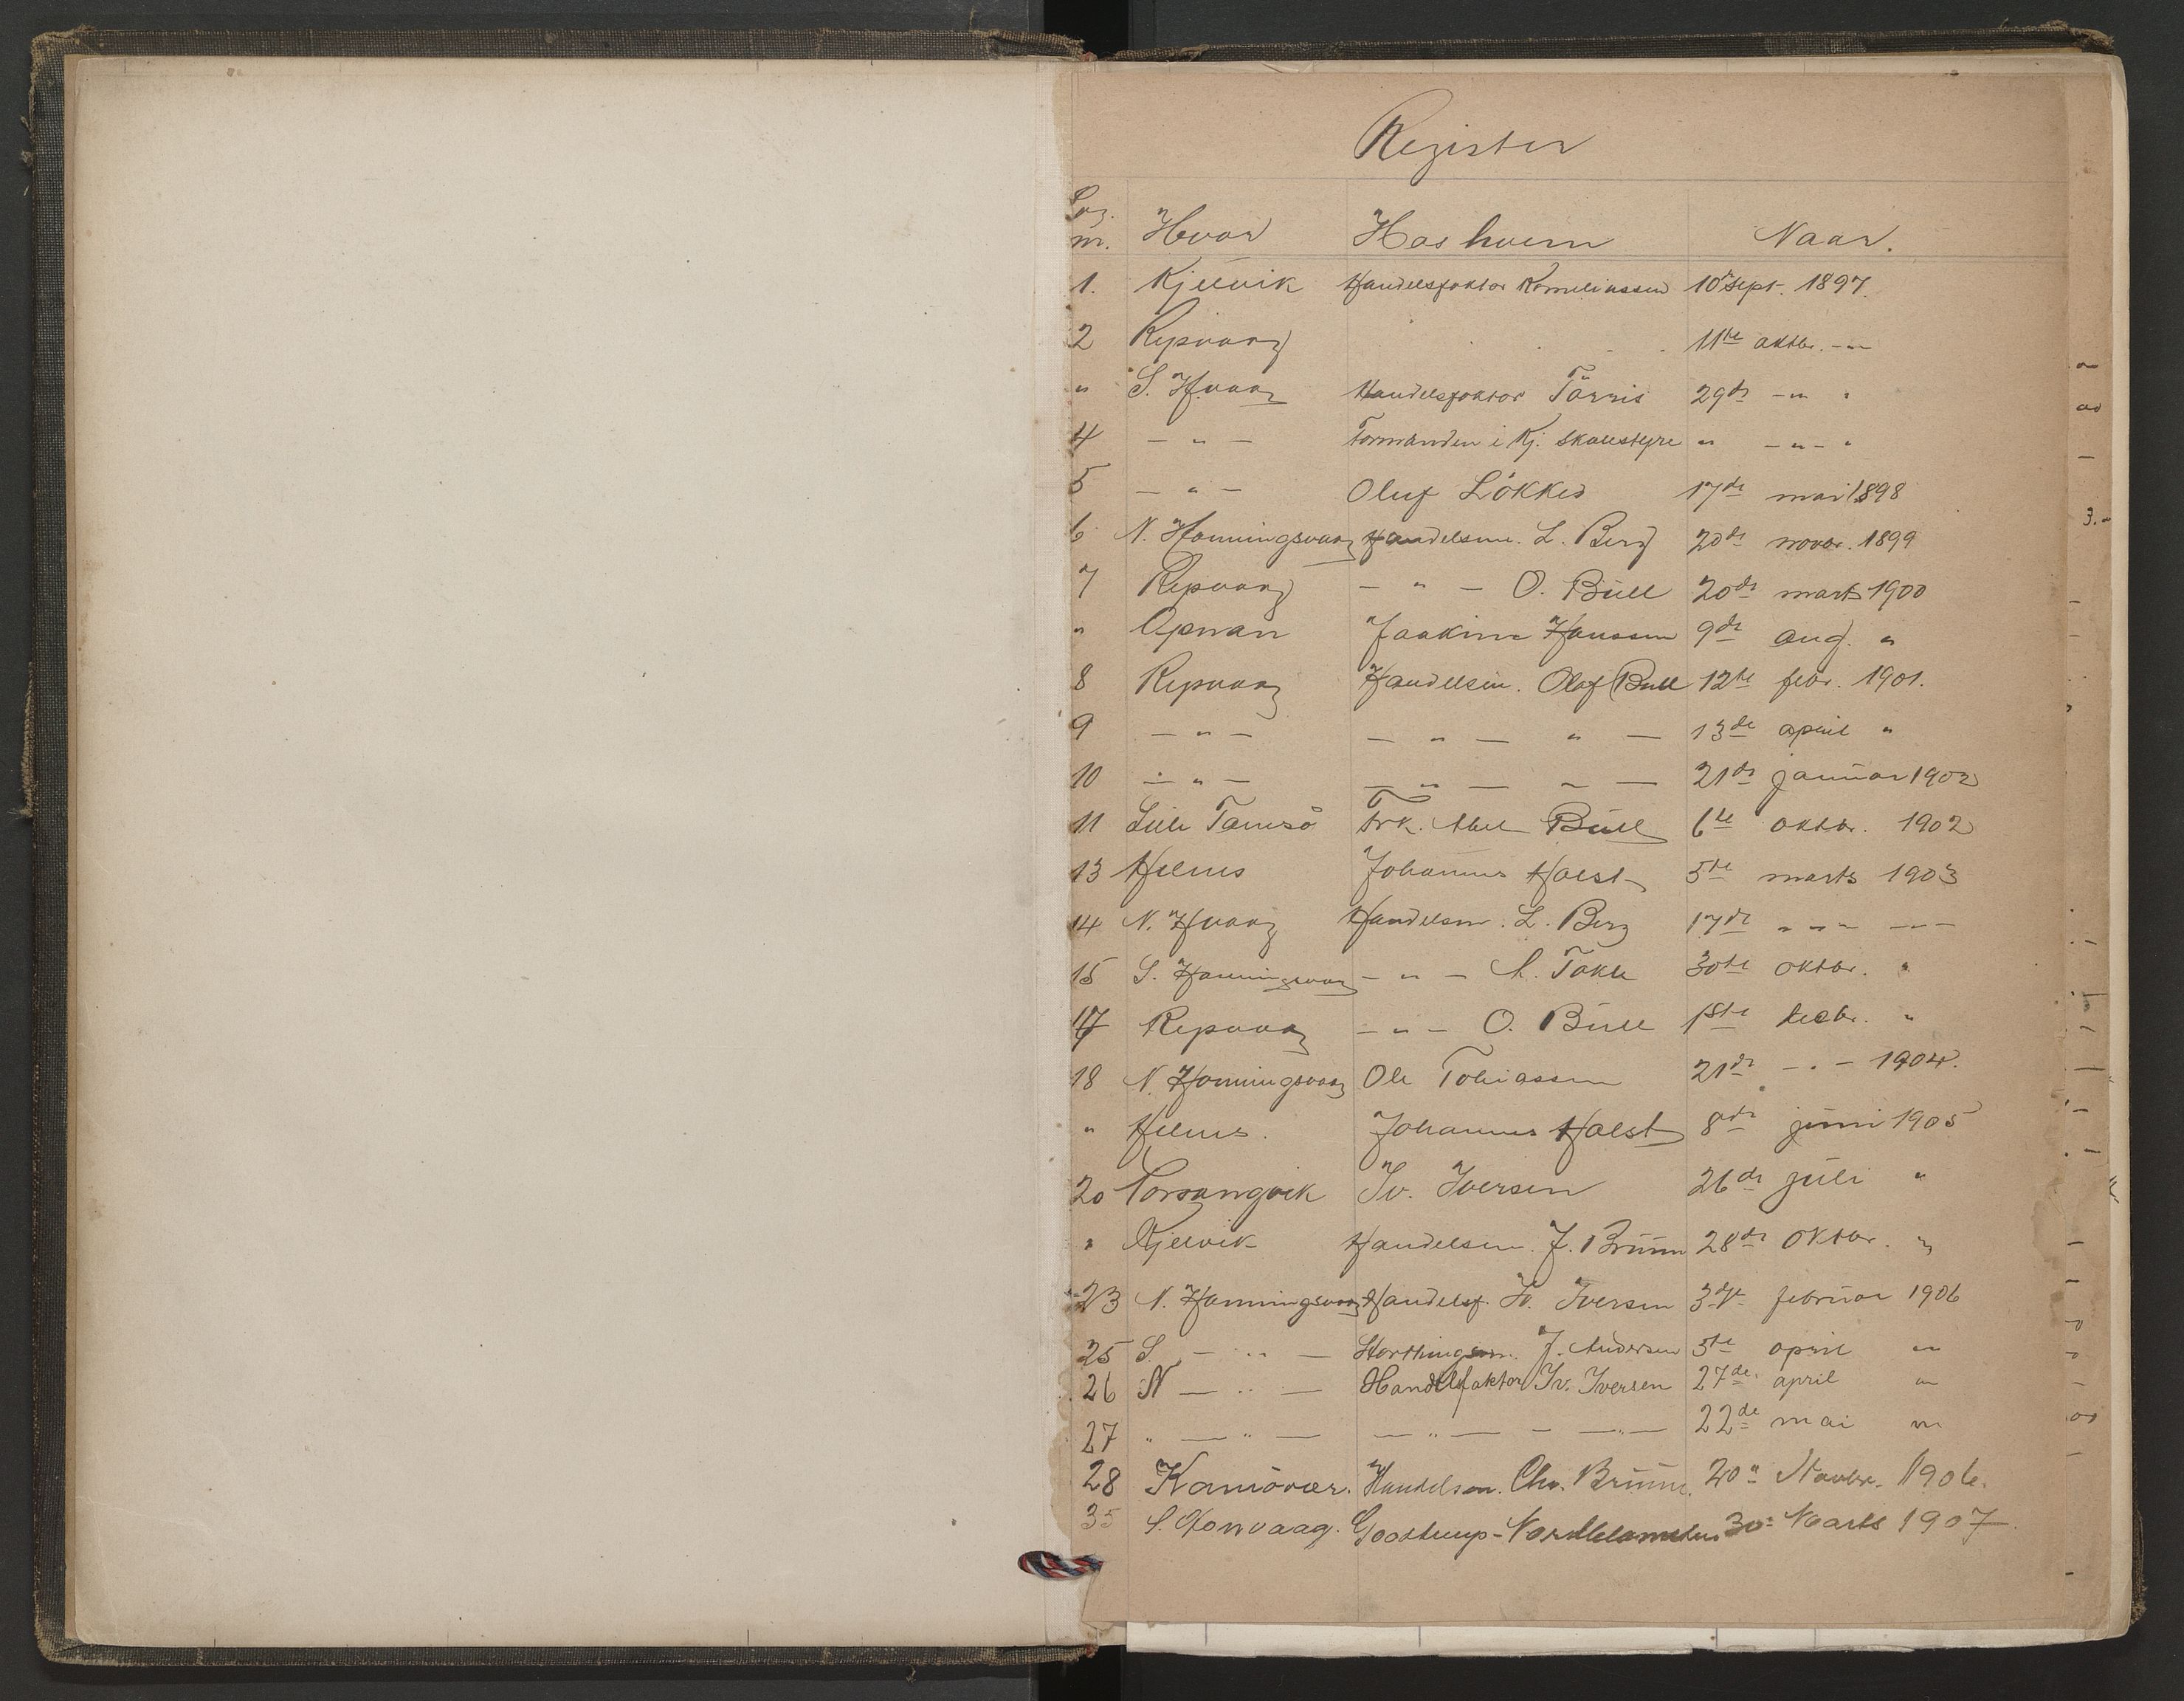 Register
Pag.
nr. Hvor Hos hvem Naar.
1. Kjelvik Handelsfaktor Korneliussen 10de sept. 1897.
2 Repvaag 11te oktbr. -"-
" S. Hvaag Handelsfaktor Tørris 29de -"- "
4 - " - Formanden i Kj. skolestyre " -"- "
5 - " - Oluf Løkke 17de mai 1898
6 N. Honningsvaag Handelsm. L. Berg 20de novbr. 1899
7 Repvaag - " - O. Büll 20de marts 1900
" Opnan Joakim Hansen 9de aug. "
8 Repvaag Handelsm. Olaf Bull 12te febr. 1901.
9 - " - - " - " - 13de april "
10 - " - - " - " - 21de januar 1902
11 Lille Tamsø Frk. Büll 6te oktbr. 1902
13 Helnes Johannes Holst 5te marts 1903
14 N. Hvaag Handelsm. L. Berg 17de - " - -"-
15 S. Honningsvaag - " - 30te oktbr. "
17 Repvaag - " - O. Büll 1ste decbr. "
18 N. Honningsvaag Ole Tobiassen 21de - " - 1904.
" Helnes. Johannes Holst 8de juni 1905
20 Porsangvik Iv. Iversen 26de juli "
" Kjelvik Handelsm. J. Brünn 28de oktbr. "
23 N. Honningsvaag Handelsf. Iv. Iversen 3die februar 1906
25 S. - " - Storthingsm. J. Andersen 5te april "
26 N - " - Handelsfaktor Iv. Iversen 27de april "
27 " - " - - " - - " - 22de mai "
28 Kamøvær. Handelsm. Chr. Brünn. 20de Novbr. 1906.
35 S. Honvaag. 30 Marts 1907.